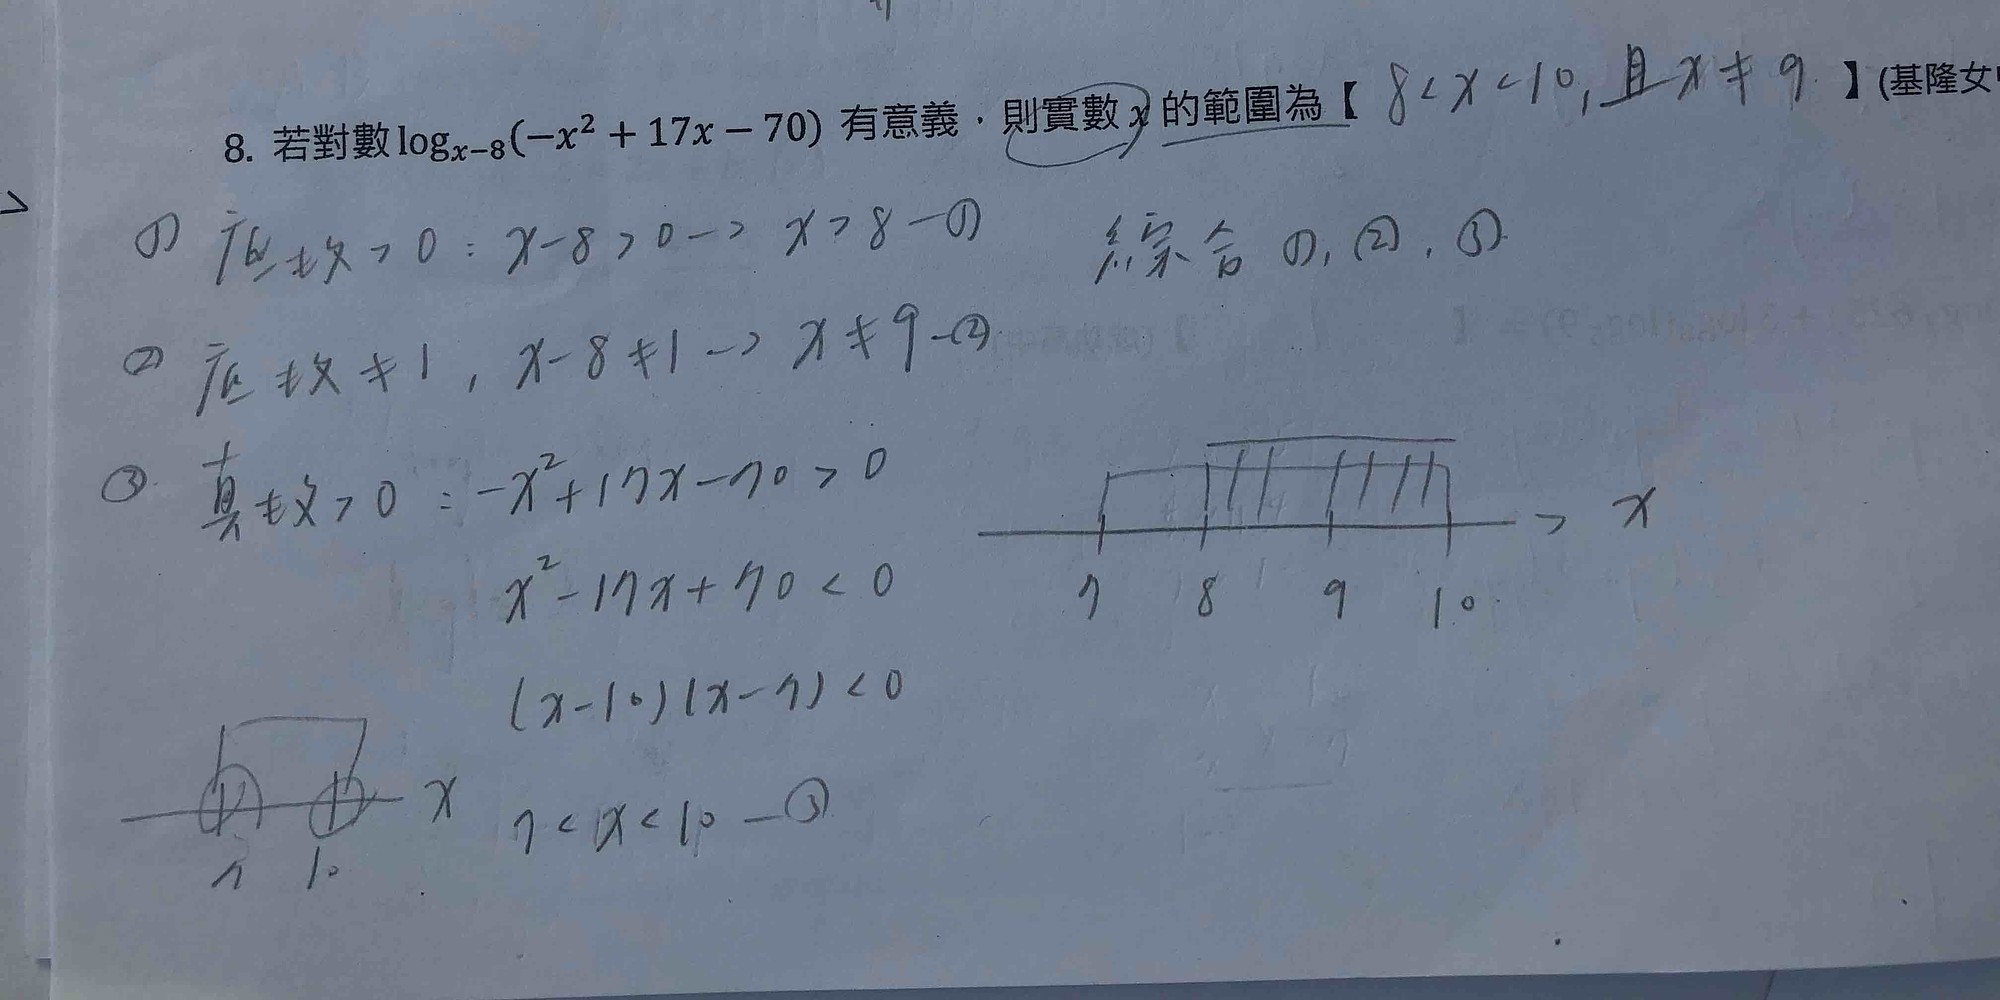 8. 若對數 log_{x-8}(-x² + 17x - 70) 有意義，則實數 x 的範圍為【 8<x<10, 且 x≠9 】(基隆女
① 底數>0 : x-8>0 -> x>8 -①
綜合 ①, ②, ③
② 底數≠1, x-8≠1 -> x≠9 -②
③ 真數>0 : -x²+17x-70>0
x²-17x+70<0
(x-10)(x-7)<0
7<x<10 -③
7 8 9 10 x
7 10 x